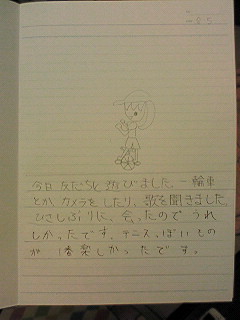 8 5
今日 友だちと 遊びました。一輪車
とか カメラを したり、歌を 聞きました。
ひさしぶりに、会ったので うれ
しかったです。テニスっぽい もの
が 1番楽しかったです。